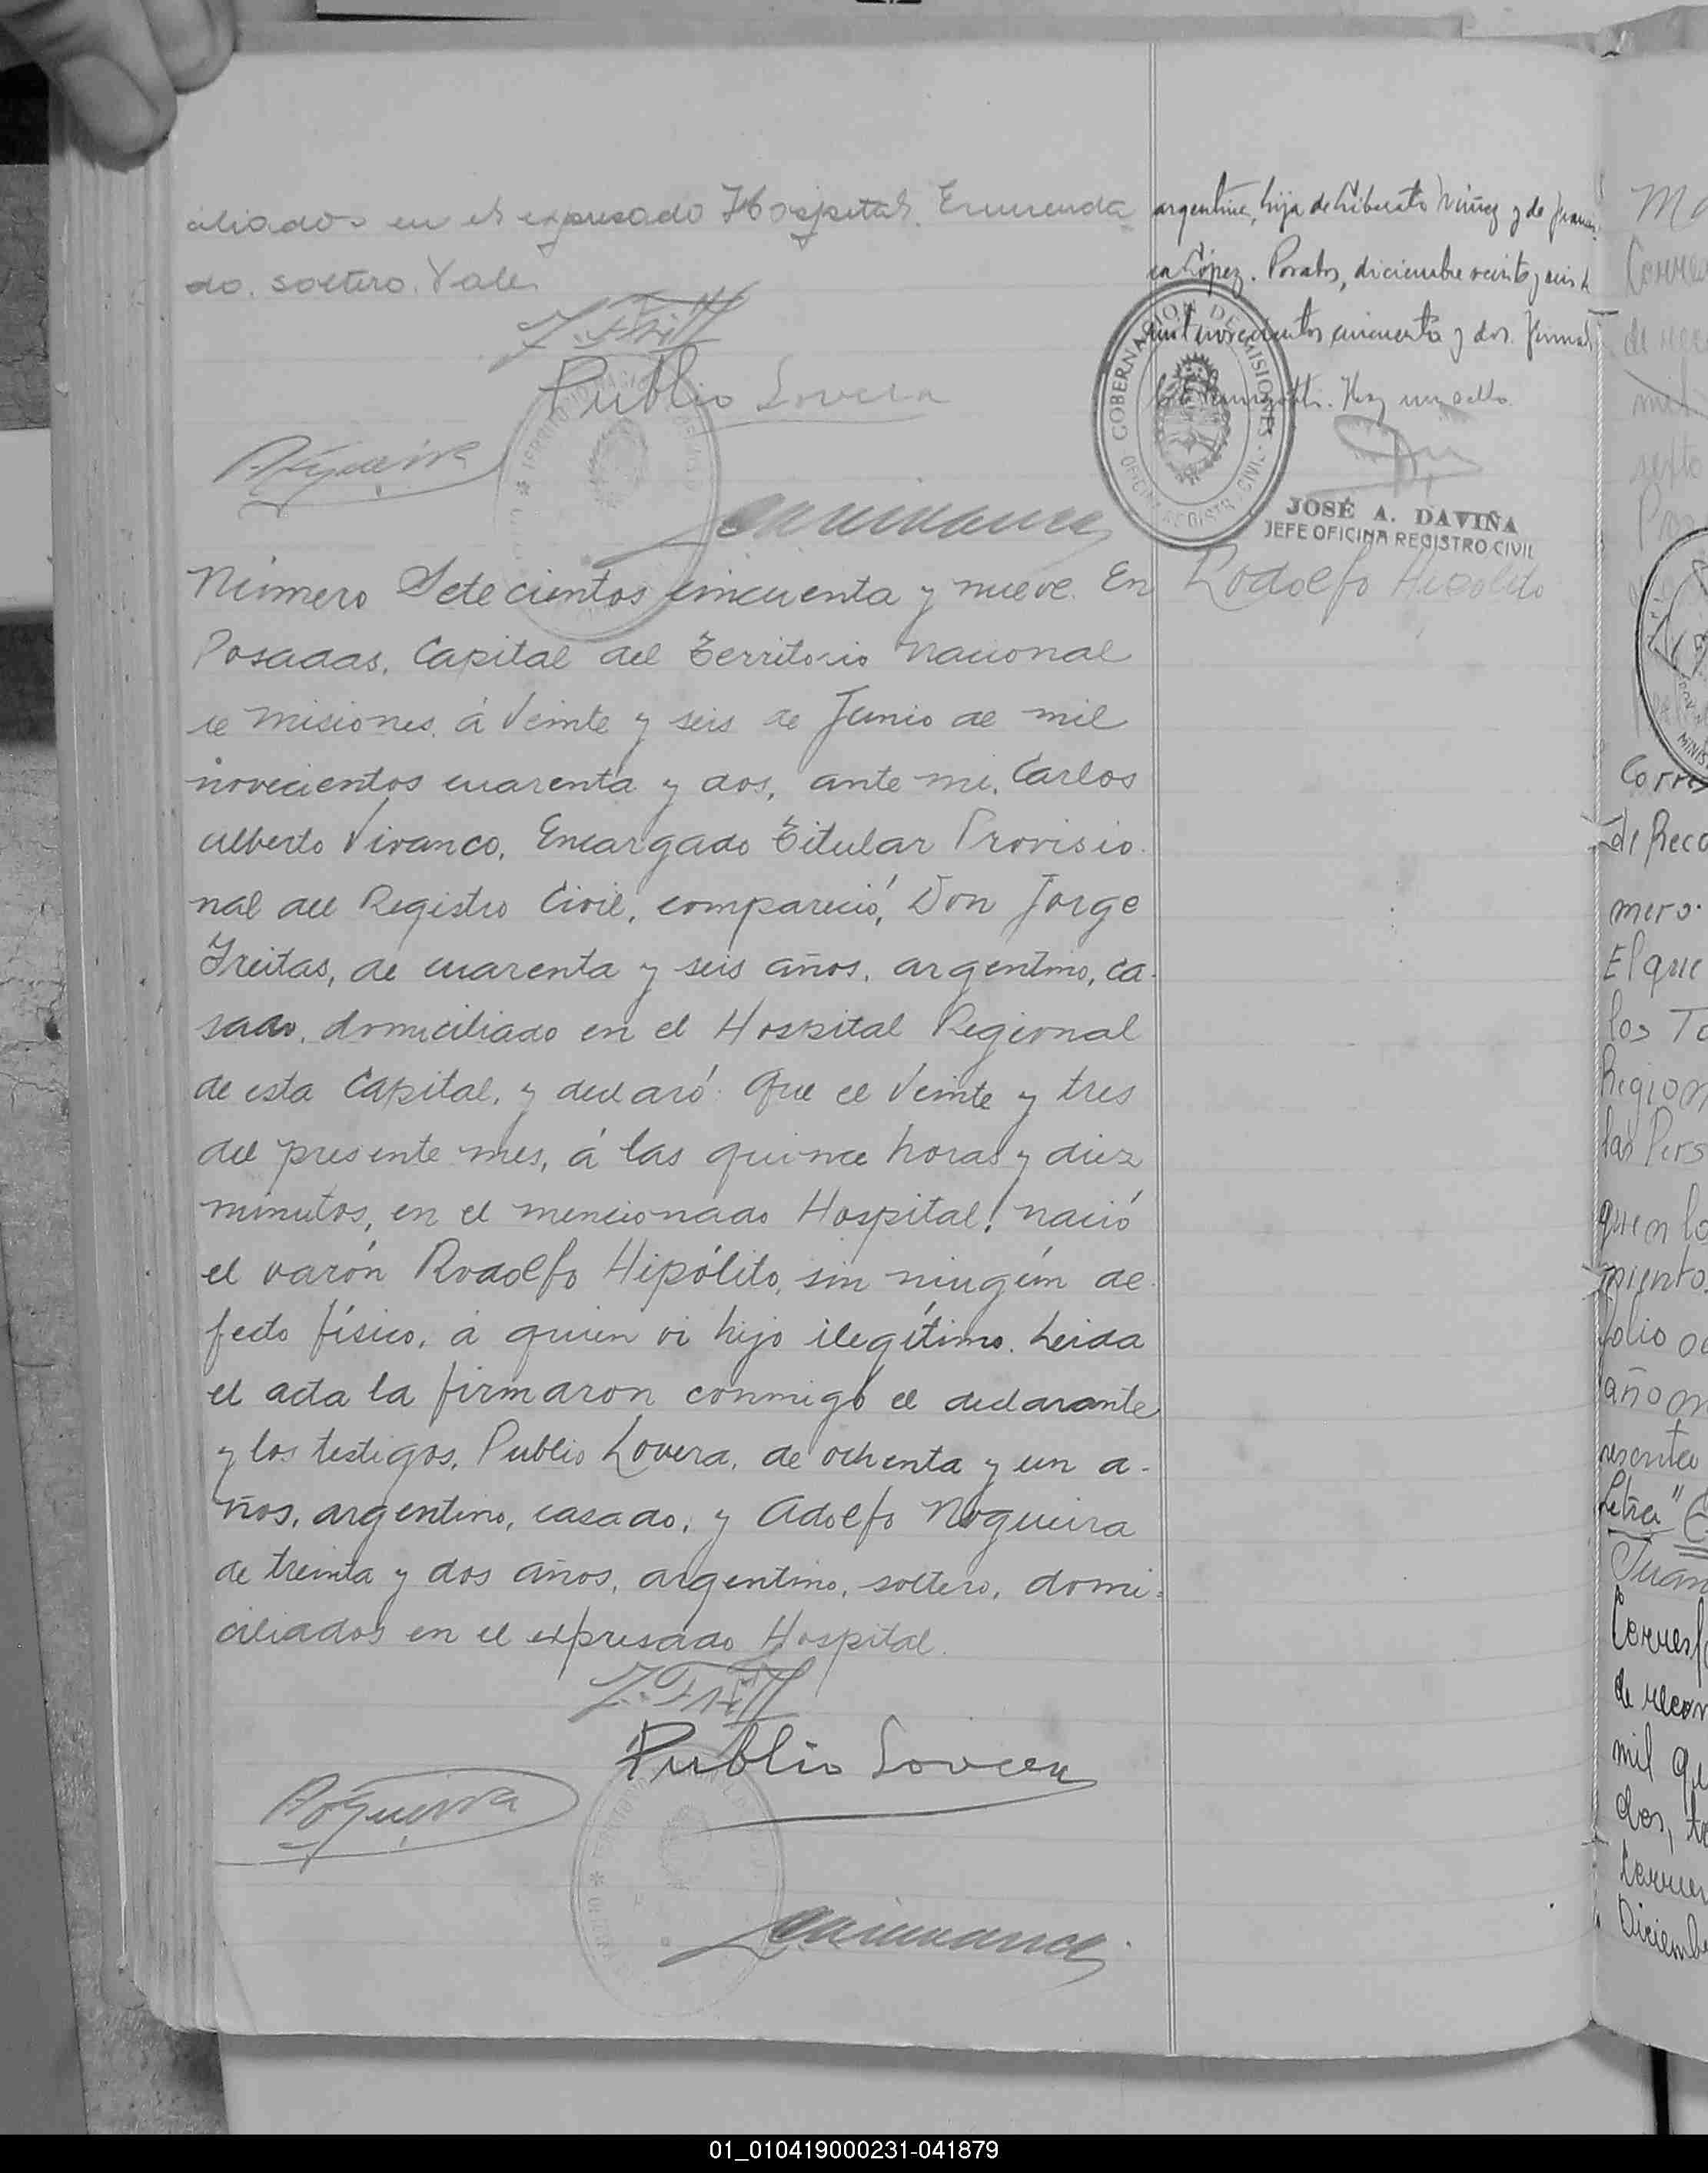 ciliados en el expresado Hospital. Enmenda
do. soltero. Vale.
Publio Lovera
Número Setecientos cincuenta y nueve. En
Posadas, Capital del Territorio Nacional
de Misiones, á veinte y seis de Junio de mil
novecientos cuarenta y dos, ante mi, Carlos
Alberto Vivanco, Encargado Titular Provisio
nal del Registro Civil, compareció, Don Jorge
Freitas, de cuarenta y seis años, argentino, ca-
sado, domiciliado en el Hospital Regional
de esta Capital, y declaró: Que el veinte y tres
del presente mes, á las quince horas y diez
minutos, en el mencionado Hospital, nació
el varón Rodolfo Hipólito, sin ningún de-
fecto físico, á quien vi hijo ilegítimo. Leida
el acta la firmaron conmigo el declarante
y los testigos, Publio Lovera, de ochenta y un a-
ños, argentino, casado, y Adolfo Nogueira
de treinta y dos años, argentino, soltero, domi-
ciliados en el expresado Hospital.
Publio Lovera
argentina, hija de Liberato Núñez y de
López. Posadas, diciembre veinte y seis de
mil novecientos cincuenta y dos.
Hay un sello.
GOBERNACION DE MISIONES
JOSÉ A. DAVIÑA
JEFE OFICINA REGISTRO CIVIL
Rodolfo Hipolito
Corres
de Reco
mero
El que
los
Region
las Pers
quien lo
miento
folio
año
Letra
Juan
de recon
mil
dos,
Diciemb
01_010419000231-041879